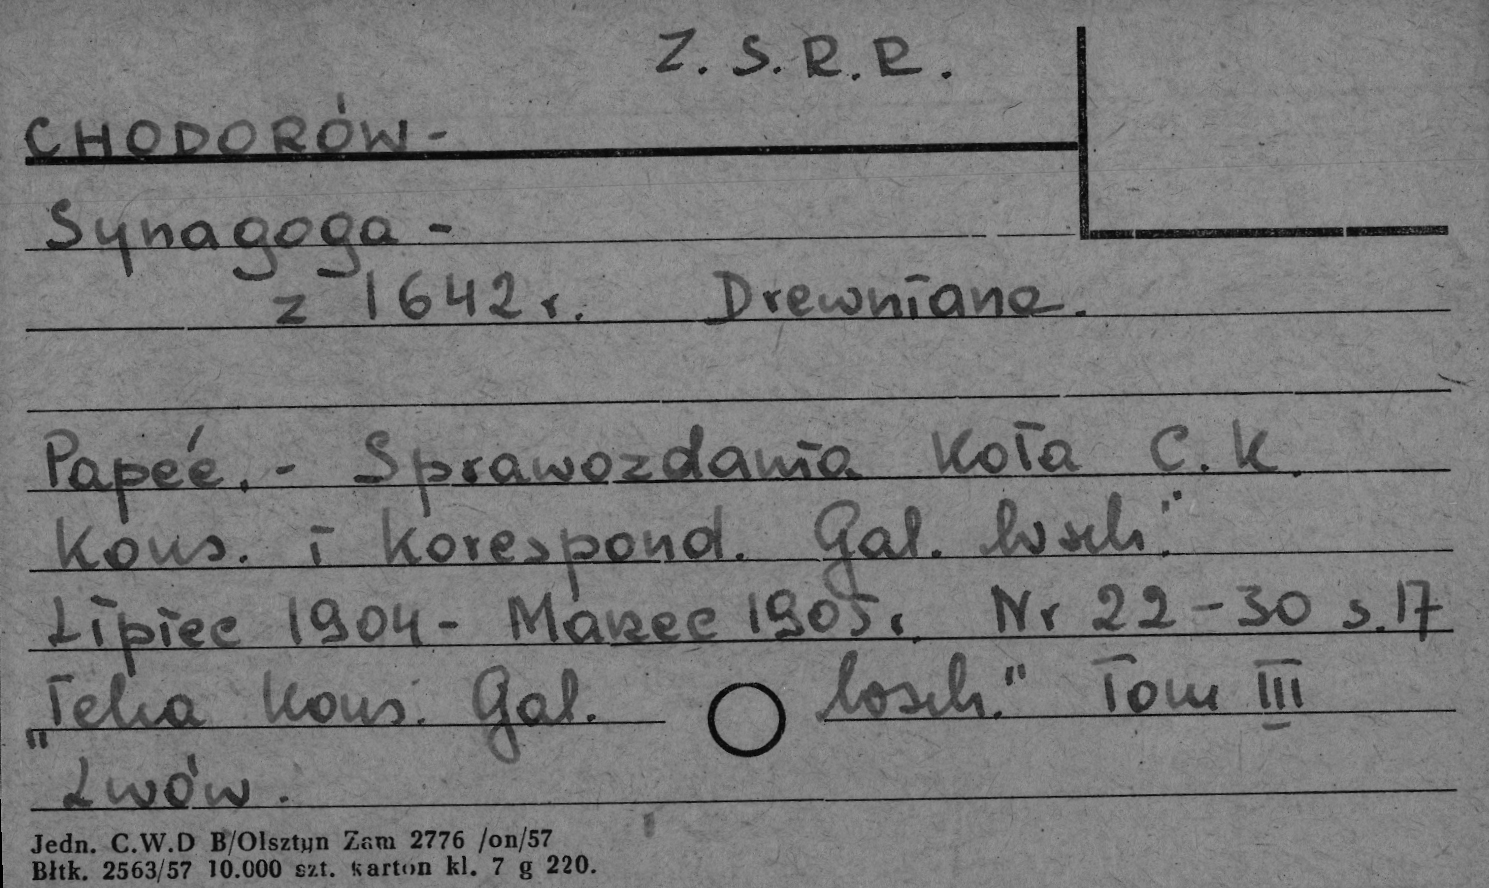 Z.S.R.R.
CHODORÓW -
Synagoga -
z 1642 r. Drewniana.
Papeé. - Sprawozdania Koła C.K.
Kons. i Korespond. Gal. wsch."
Lipiec 1904 - Marzec 1905 r. Nr 22-30 s. 17
"Teka Kons. Gal. wsch." Tom III
Lwów.
Jedn. C.W.D B/Olsztyn Zam 2776 /on/57
Błtk. 2563/57 10.000 szt. karton kl. 7 g 220.